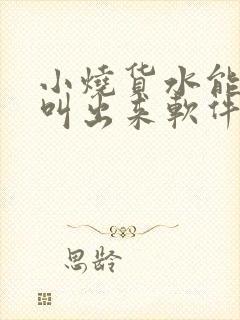 小燒货水能
叫出来軟件
思龄